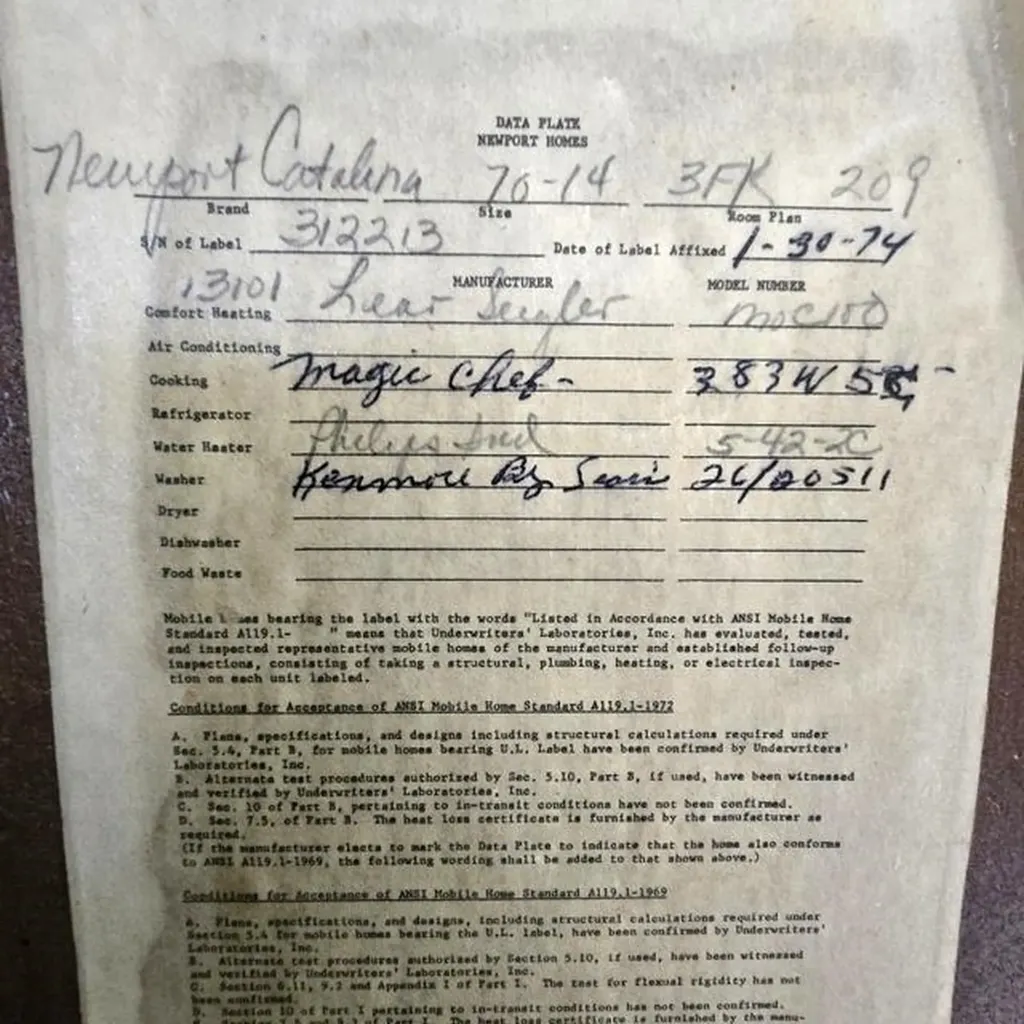 DATA PLATE
NEWPORT HOMES
Newport Catalina 70-14 3FK 209
Brand Size Room Plan
S/N of Label 312213 Date of Label Affixed 1-30-74
13101 MANUFACTURER MODEL NUMBER
Comfort Heating Lear Seigler
Air Conditioning
Cooking Magic Chef - 383W
Refrigerator
Water Heater 5-42-2C
Washer Kenmore By Sears 26/20511
Dryer
Dishwasher
Food Waste
Mobile bearing the label with the words "Listed in Accordance with ANSI Mobile Home
Standard A119.1- " means that Underwriters' Laboratories, Inc. has evaluated, tested,
and inspected representative mobile homes of the manufacturer and established follow-up
inspections, consisting of taking a structural, plumbing, heating, or electrical inspec-
tion on each unit labeled.
Conditions for Acceptance of ANSI Mobile Home Standard A119.1-1972
A. Plans, specifications, and designs including structural calculations required under
Sec. 5.4, Part B, for mobile homes bearing U.L. Label have been confirmed by Underwriters'
Laboratories, Inc.
B. Alternate test procedures authorized by Sec. 5.10, Part B, if used, have been witnessed
and verified by Underwriters' Laboratories, Inc.
C. Sec. 10 of Part B, pertaining to in-transit conditions have not been confirmed.
D. Sec. 7.5, of Part B. The heat loss certificate is furnished by the manufacturer as
required.
(If the manufacturer elects to mark the Data Plate to indicate that the home also conforms
to ANSI A119.1-1969, the following wording shall be added to that shown above.)
Conditions for Acceptance of ANSI Mobile Home Standard A119.1-1969
A. Plans, specifications, and designs, including structural calculations required under
Section 5.4 for mobile homes bearing the U.L. label, have been confirmed by Underwriters'
Laboratories, Inc.
B. Alternative test procedures authorized by Section 5.10, if used, have been witnessed
and verified by Underwriters' Laboratories, Inc.
C. Section 6.11, 9.2 and Appendix I of Part I. The test for flexual rigidity has not
been confirmed.
D. Section 10 of Part I pertaining to in-transit conditions has not been confirmed.
of Part I. The heat loss certificate is furnished by the manu-